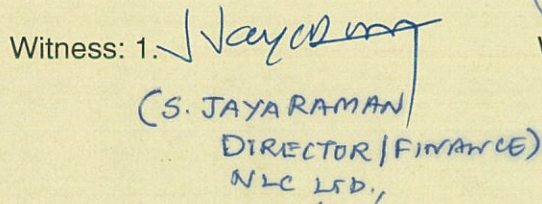 Witness: 1.
(S. JAYARAMAN
DIRECTOR/FINANCE)
NLC LTD.,